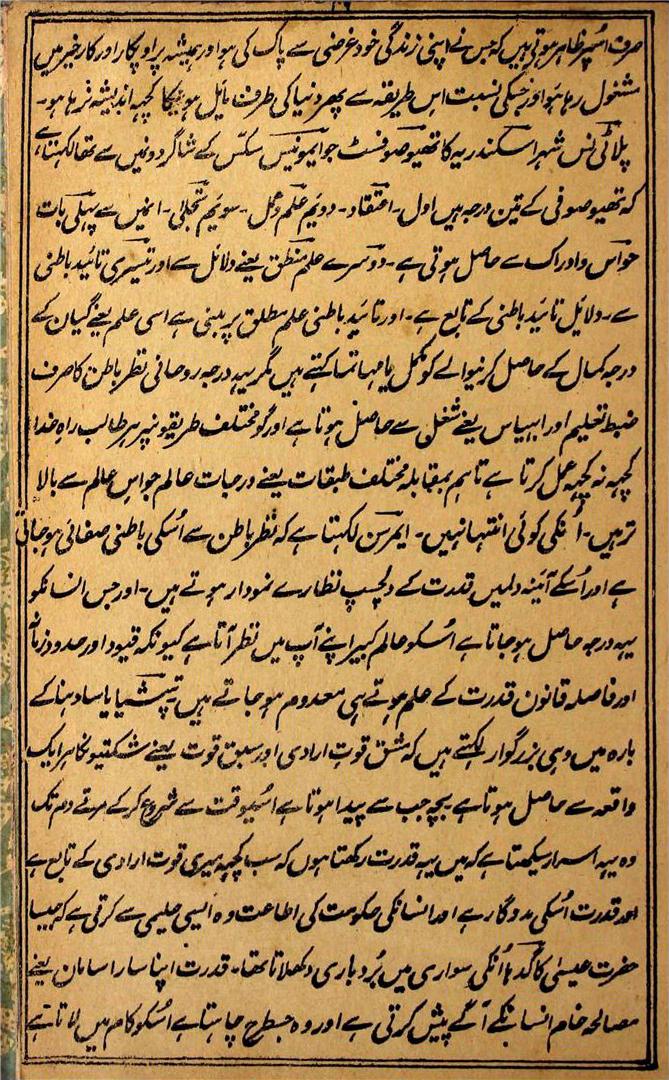 ۱۶
صرف اسپر ظاہر ہوتی ہیں کہ جس نے اپنی زندگی خودغرضی سے پاک کی ہو اور ہمیشہ پراوپکار اور کارخیر میں
مشغول رہا ہو اور جسکی نسبت اس طریقہ سے پھر دنیا کی طرف مائل ہونیکا کچہہ اندیشہ نرہا ہو۔
پلاٹی نس شہر اسکندریہ کا تھیوصوفسٹ جو ایمونیس سکس کے شاگردونمیں سے تھا لکہتا ہے
کہ تھیوصوفی کے تین درجہ ہیں اول۔ اعتقاد۔ دویم علم و عمل۔ سویم تجلی۔ انمیں سے پہلی بات
حواس و ادراک سے حاصل ہوتی ہے۔ دوسرے علم منطق یعنے دلائل سے اور تیسری تائید باطنی
سے۔ دلائل تائید باطنی کے تابع ہے۔ اور تائید باطنی علم مطلق پر مبنی ہے اسی علم یعنے گیان کے
درجہ کمال کے حاصل کرنیوالے کو مکمل یا مہاتما کہتے ہیں مگر یہہ درجہ روحانی نظر باطن کا صرف
ضبط تعلیم اور ابہیاس یعنے شغل سے حاصل ہوتا ہے اور گو مختلف طریقونپر ہر طالب راہ خدا
کچہہ نہ کچہہ عمل کرتا ہے تاہم بمقابلہ مختلف طبقات یعنے درجات عالم جو اس عالم سے بالا
تر ہیں۔ اُنکی کوئی انتہا نہیں۔ ایمرسن لکہتا ہے کہ نظر باطن سے اُسکی باطنی صفائی ہو جاتی
ہے اور اُسکے آئینہ دلمیں قدرت کے دلچسپ نظارے نمودار ہوتے ہیں۔ اور جس انسانکو
یہہ درجہ حاصل ہو جاتا ہے اُسکو عالم کبیر اپنے آپ میں نظر آتا ہے کیونکہ قیود اور حدود زمانہ
اور فاصلہ قانون قدرت کے علم ہوتے ہی معدوم ہو جاتے ہیں۔ تپشیا یا سادہنا کے
بارہ میں وہی بزرگوار لکہتے ہیں کہ مشق قوت ارادی اور سبق قوت یعنے شکتیونکا ہر ایک
واقعہ سے حاصل ہوتا ہے بچہ جب سے پیدا ہوتا ہے اُسیوقت سے شروع کر کے مرتے دم تک
وہ یہہ اسرار سیکہتا ہے کہ میں یہہ قدرت رکہتا ہوں کہ سب کچہہ میری قوت ارادی کے تابع ہے
اور قدرت اُسکی مددگار ہے اور انسانکی حکومت کی اطاعت وہ ایسی حلیمی سے کرتی ہے کہ جیسا
حضرت عیسیٰ کا گدہا اُنکی سواری میں بُردباری دکہلاتا تھا۔ قدرت اپنا سارا سامان یعنے
مصالحہ خام انسانکے آگے پیش کرتی ہے اور وہ جسطرح چاہتا ہے اُسکو کام میں لاتا ہے